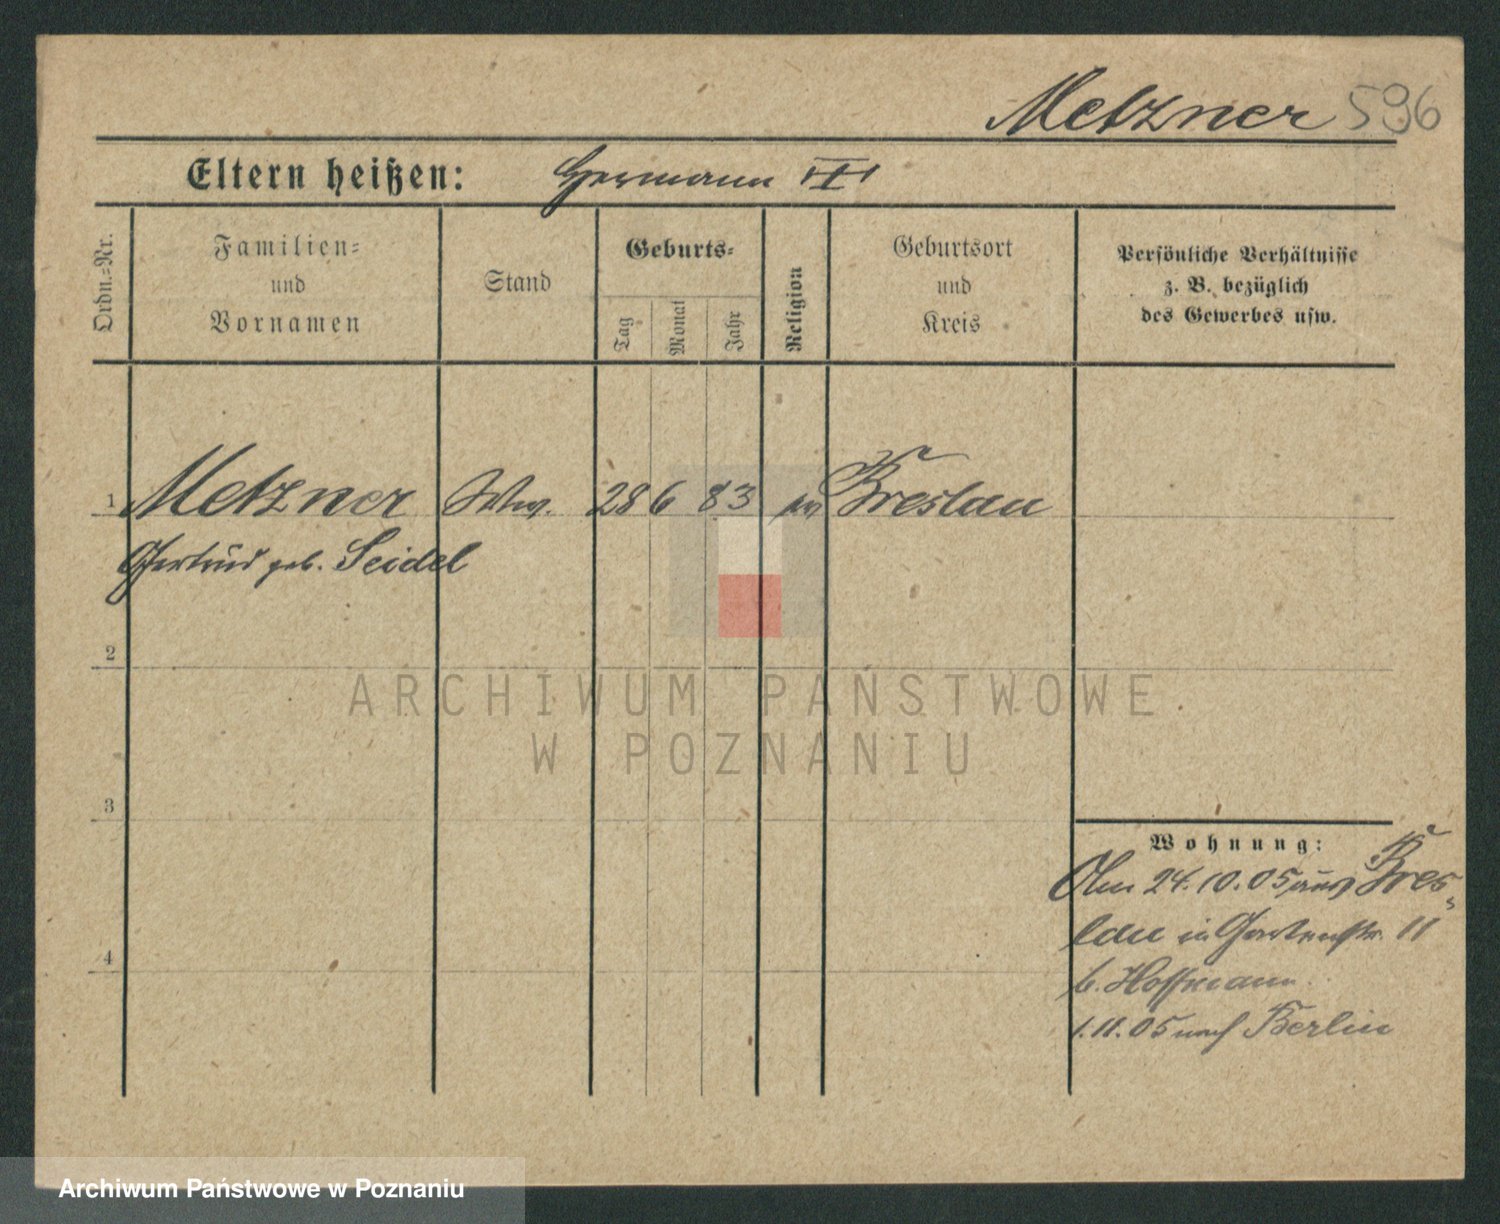 Metzner 596
Eltern heißen: Hermann III
Ordn.=Nr.
Familien=
und
Vornamen
Stand
Geburts=
Tag
Monat
Jahr
Religion
Geburtsort
und
Kreis
Persönliche Verhältnisse
z. B. bezüglich
des Gewerbes usw.
1 Metzner Ww. 28 6 83 Breslau
Gertrud geb. Seidel
2
3
4
Wohnung:
Am 24.10.05 aus Bres-
lau in Gartenstr. 11
b. Hoffmann
1.11.05 nach Berlin
ARCHIWUM PAŃSTWOWE
W POZNANIU
Archiwum Państwowe w Poznaniu